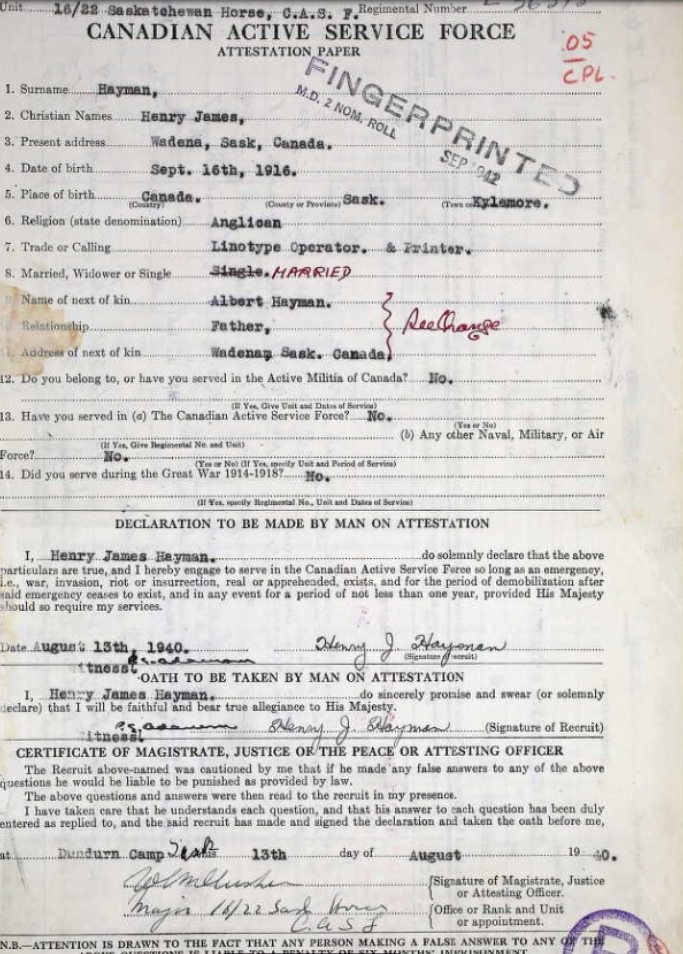 Unit 16/22 Saskatchewan Horse, C.A.S. F. Regimental Number
CANADIAN ACTIVE SERVICE FORCE
ATTESTATION PAPER
.05
CPL.
FINGERPRINTED
M.D. 2 NOM. ROLL
SEP 1942
1. Surname Hayman,
2. Christian Names Henry James,
3. Present address Wadena, Sask, Canada.
4. Date of birth Sept. 16th, 1916.
5. Place of birth Canada. Sask. Kylemore.
(Country) (County or Province) (Town or
6. Religion (state denomination) Anglican
7. Trade or Calling Linotype Operator. & Printer.
8. Married, Widower or Single Single. MARRIED
9. Name of next of kin Albert Hayman.
Relationship Father, See Change
11. Address of next of kin Wadenam Sask. Canada,
12. Do you belong to, or have you served in the Active Militia of Canada? No.
(If Yes, Give Unit and Dates of Service)
13. Have you served in (a) The Canadian Active Service Force? No.
(Yes or No)
(b) Any other Naval, Military, or Air
(If Yes, Give Regimental No. and Unit)
Force? No.
(Yes or No) (If Yes, specify Unit and Period of Service)
14. Did you serve during the Great War 1914-1918? No.
(If Yes, specify Regimental No., Unit and Dates of Service)
DECLARATION TO BE MADE BY MAN ON ATTESTATION
I, Henry James Hayman. do solemnly declare that the above
particulars are true, and I hereby engage to serve in the Canadian Active Service Force so long as an emergency,
i.e., war, invasion, riot or insurrection, real or apprehended, exists, and for the period of demobilization after
said emergency ceases to exist, and in any event for a period of not less than one year, provided His Majesty
should so require my services.
Date August 13th, 1940. Henry J Hayman
(Signature of recruit)
itness
OATH TO BE TAKEN BY MAN ON ATTESTATION
I, Henry James Hayman. do sincerely promise and swear (or solemnly
declare) that I will be faithful and bear true allegiance to His Majesty.
Henry J. Hayman (Signature of Recruit)
itness
CERTIFICATE OF MAGISTRATE, JUSTICE OF THE PEACE OR ATTESTING OFFICER
The Recruit above-named was cautioned by me that if he made any false answers to any of the above
questions he would be liable to be punished as provided by law.
The above questions and answers were then read to the recruit in my presence.
I have taken care that he understands each question, and that his answer to each question has been duly
entered as replied to, and the said recruit has made and signed the declaration and taken the oath before me,
at Dundurn Camp Sask this 13th day of August 1940.
(Signature of Magistrate, Justice
or Attesting Officer.
Major 16/22 Sask Horse
C.A.S.F
(Office or Rank and Unit
or appointment.
N.B.—ATTENTION IS DRAWN TO THE FACT THAT ANY PERSON MAKING A FALSE ANSWER TO ANY OF THE
ABOVE QUESTIONS IS LIABLE TO A PENALTY OF SIX MONTHS' IMPRISONMENT